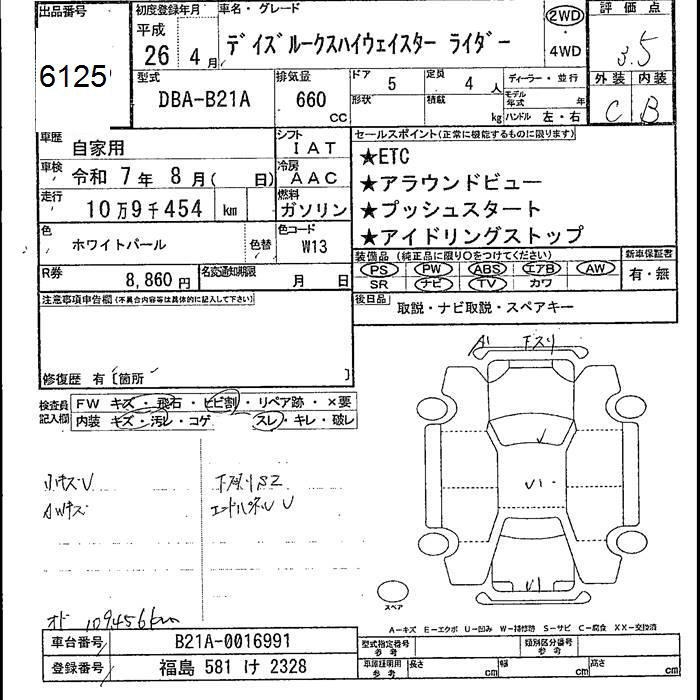 出品番号
6125
初度登録年月
平成
26 4月
車名・グレード
デイズルークスハイウェイスター ライダー
2WD
・
4WD
評価点
3.5
型式
DBA-B21A
排気量
660
cc
ドア 5
定員 4 人
形状
積載 kg
ディーラー・並行
モデル年式 年
ハンドル 左・右
外装 内装
C B
車歴 自家用
シフト
IAT
車検 令和 7年 8月( 日)
冷房
AAC
走行 10万9千454 km
燃料
ガソリン
色 ホワイトパール 色替
色コード
W13
R券 8,860円
名変通知期限
月 日
セールスポイント(正常に機能するものに限ります)
★ETC
★アラウンドビュー
★プッシュスタート
★アイドリングストップ
装備品(純正品に限り○をつけてください)
PS PW ABS エアB AW
SR ナビ TV カワ
新車保証書
有・無
後日品 取説・ナビ取説・スペアキー
注意事項申告欄(不具合内容等は具体的に記入して下さい)
修復歴 有〔箇所 〕
検査員記入欄
FW キズ・飛石・ヒビ割・リペア跡・×要
内装 キズ・汚レ・コゲ スレ・キレ・破レ
小キズU
AWキズ
下廻りS2
エンドパネルU
A1 下スリ
U1
U1
スペア
オド 109456km
A−キズ E−エクボ U−凹み W−補修跡 S−サビ C−腐食 XX−交換済
車台番号 B21A-0016991
登録番号 福島 581 け 2328
型式指定番号
参考
類別区分番号
参考
車庫証明用
参考
長さ cm
幅 cm
高さ cm